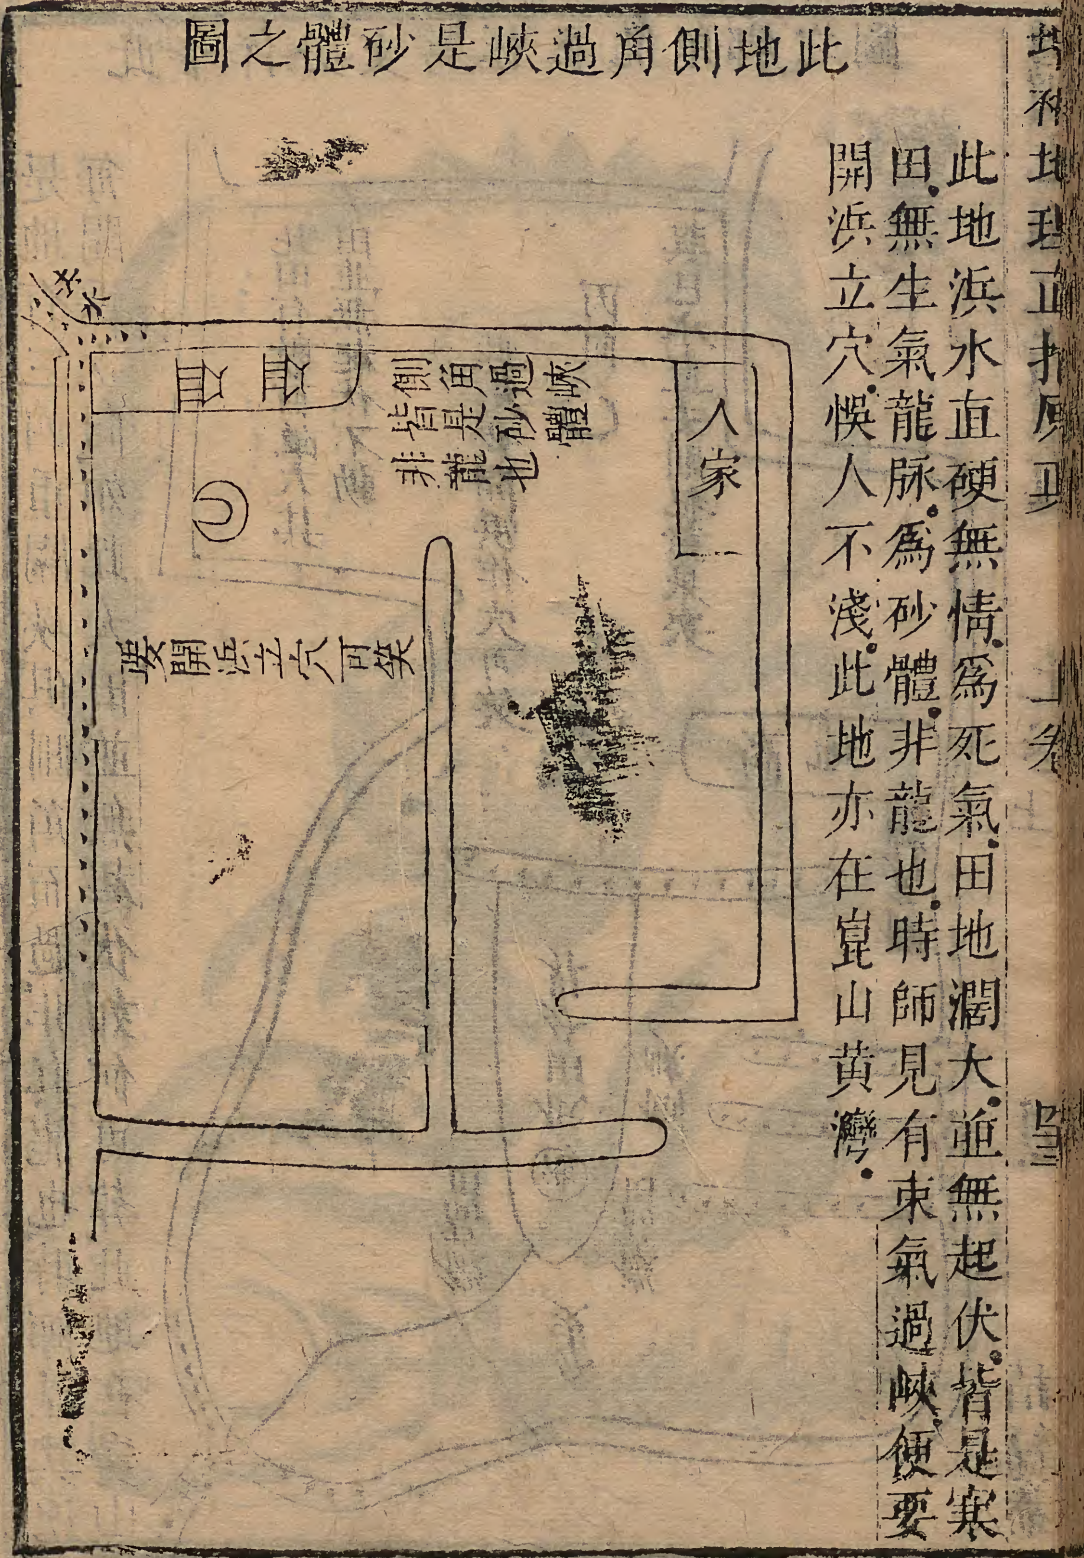 此地側角過峽是砂體之圖
此地浜水直硬無情爲死氣田地濶大並無起伏皆是寒
田無生氣龍脉爲砂體非龍也時師見有束氣過峽便要
開浜立穴悞人不淺此地亦在崑山黄灣
人家
側角過峽
皆是砂體
非龍也
要開浜立穴可笑
來水